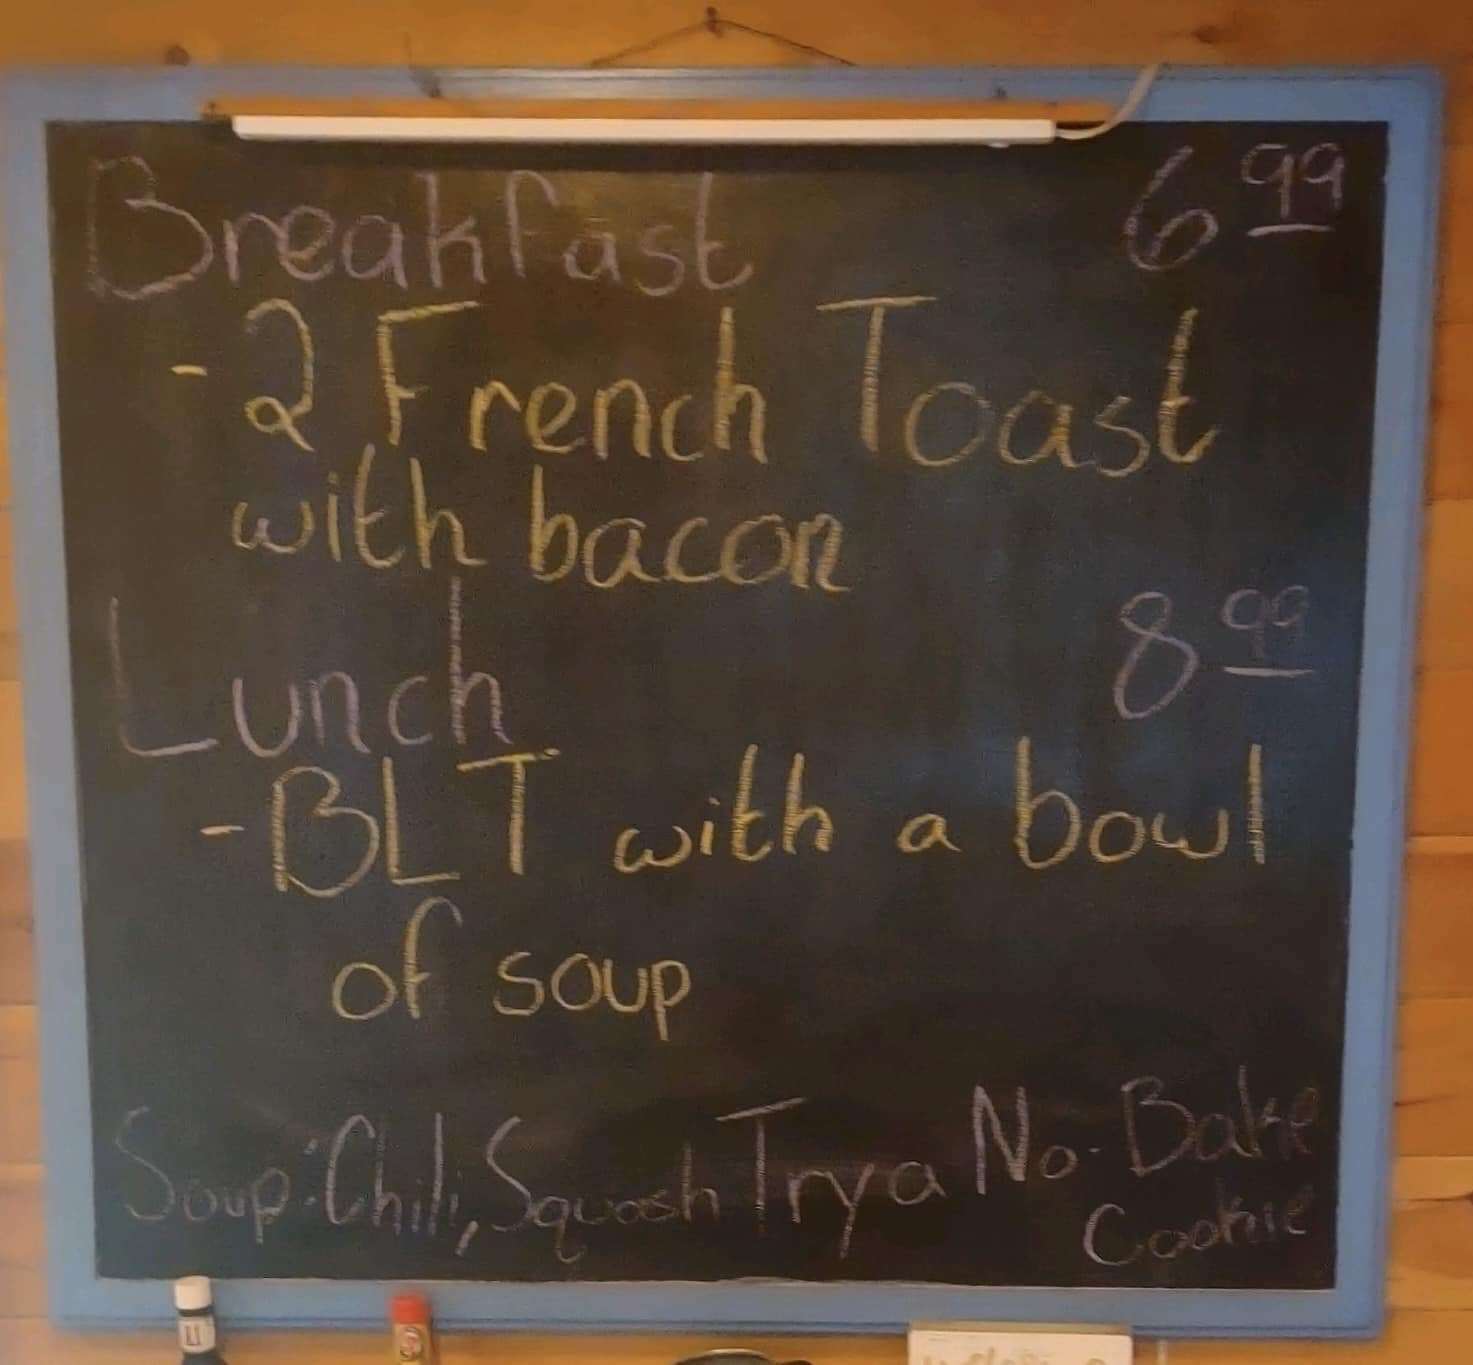 Breakfast 6 99
-2 French Toast
with bacon
Lunch 8 99
-BLT with a bowl
of soup
Soup: Chili, Squash Try a No-Bake
Cookie